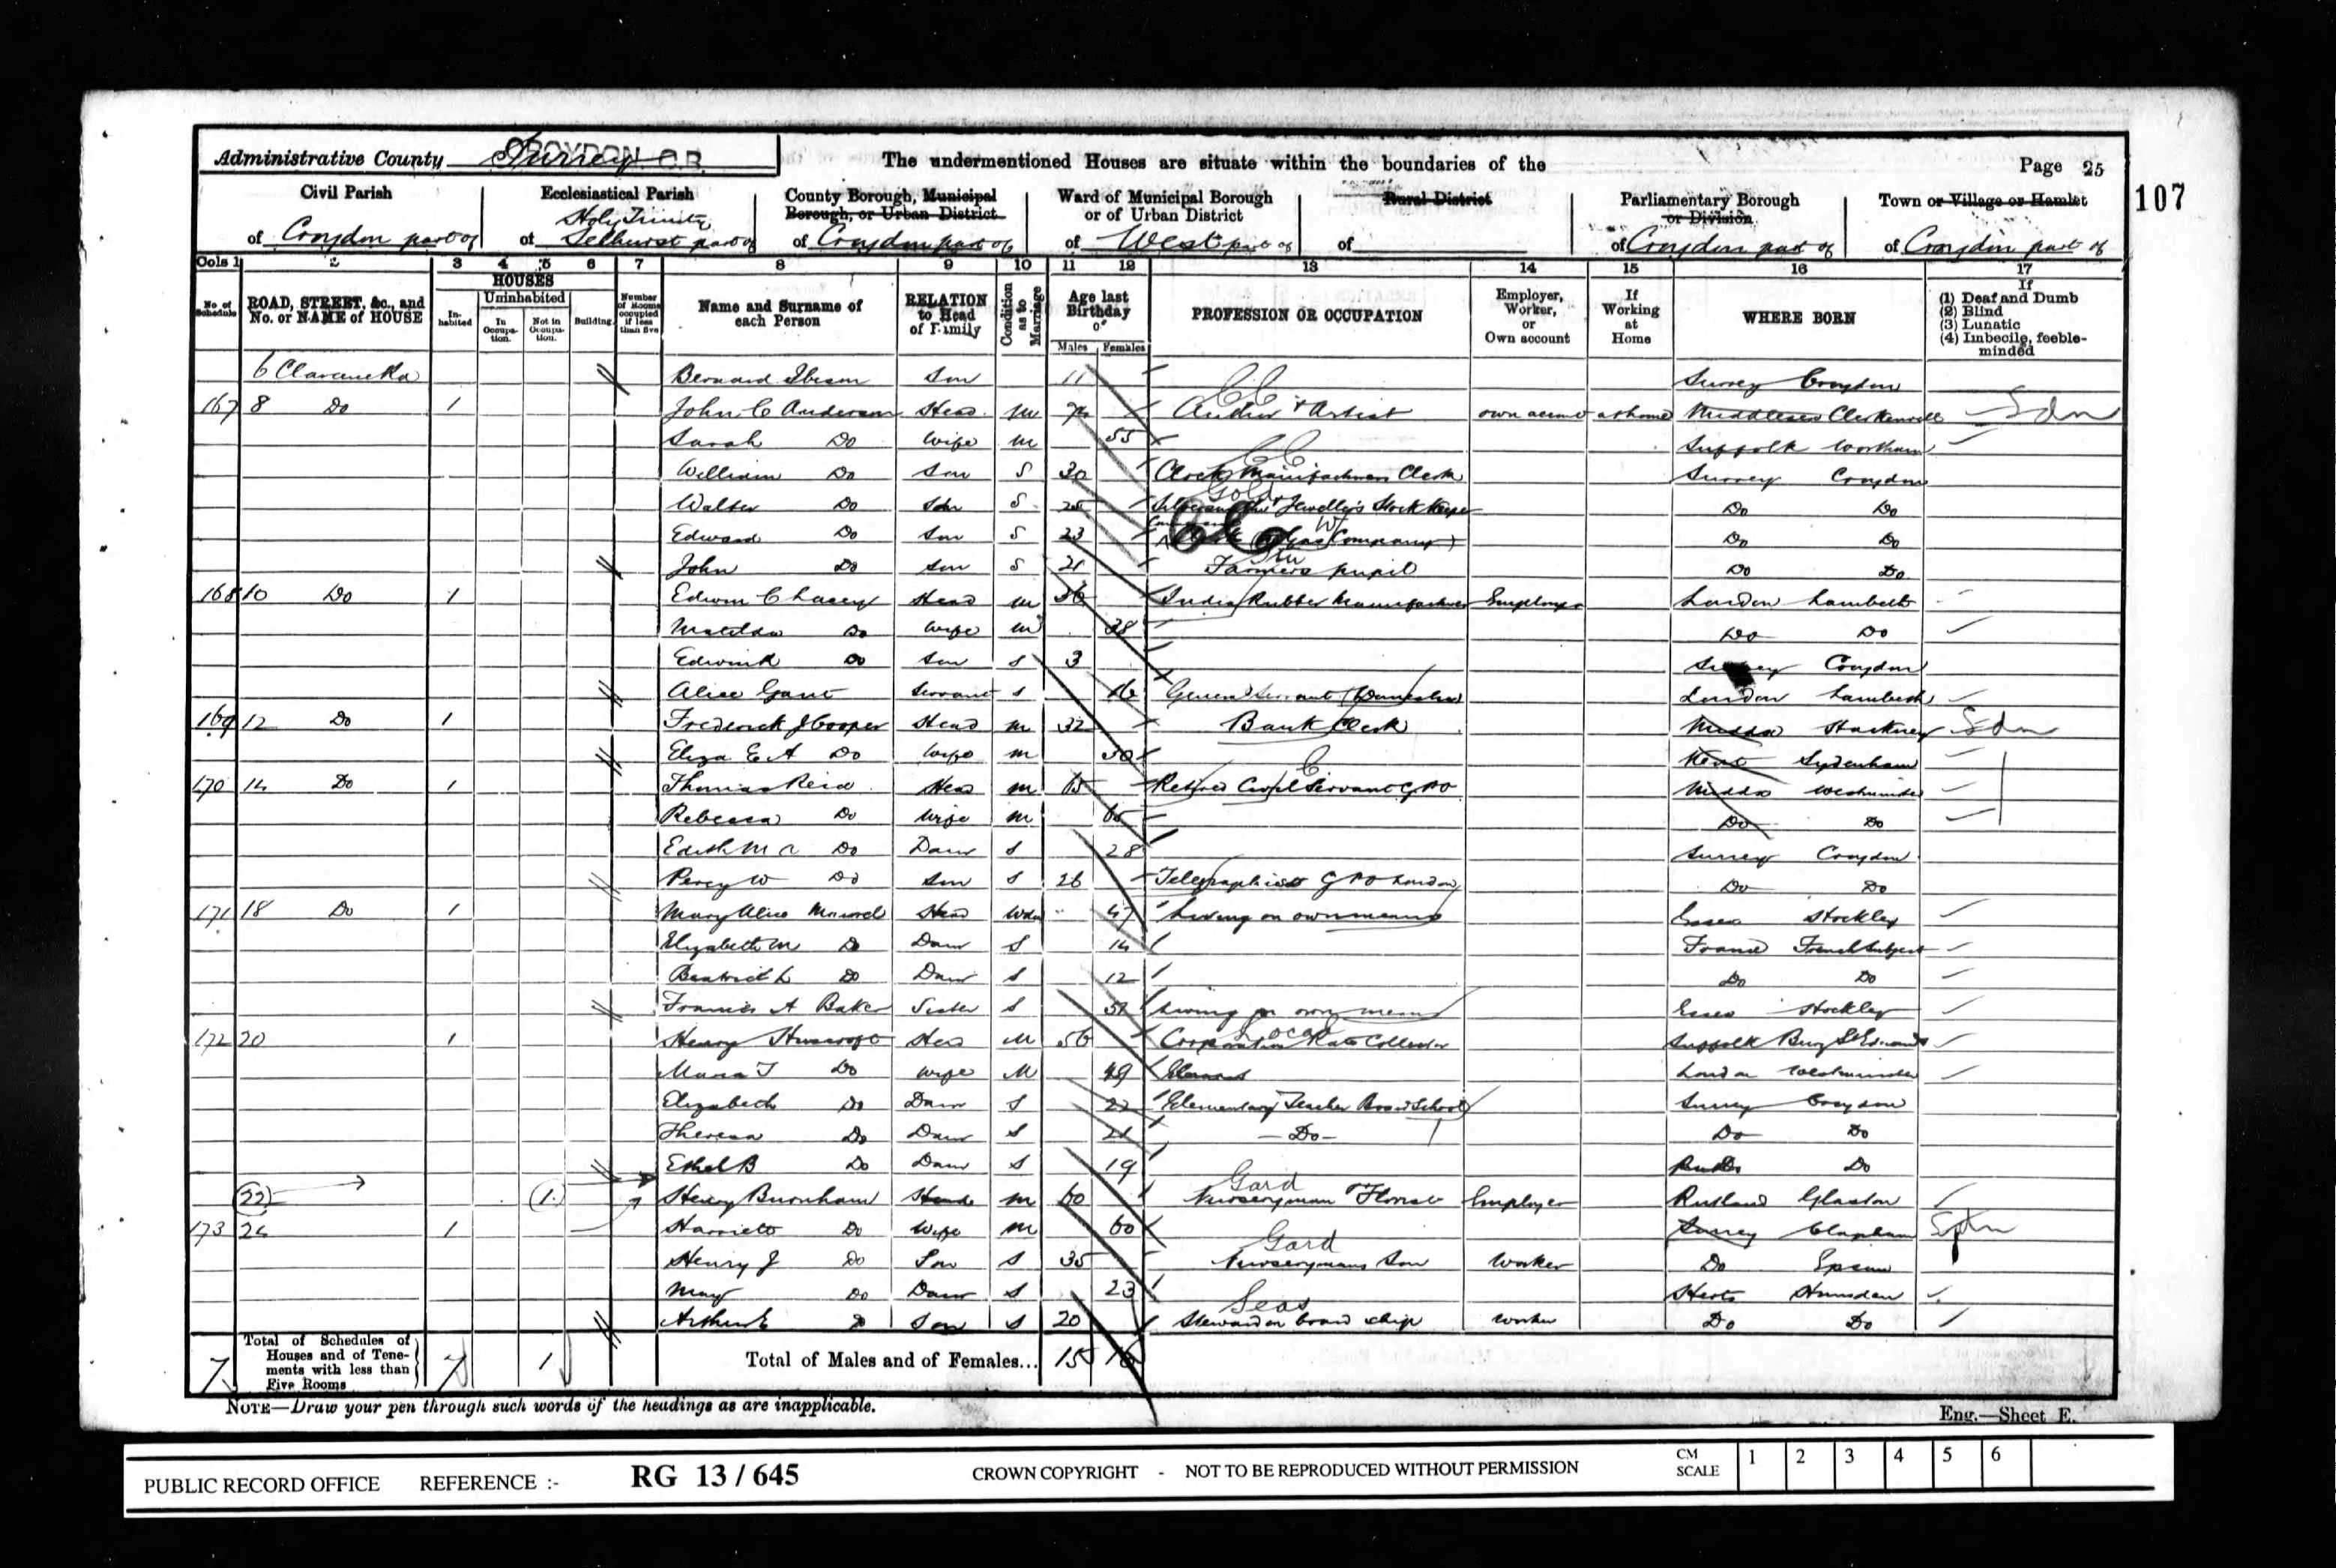 Administrative County Surrey CROYDON C.B.
The undermentioned Houses are situate within the boundaries of the
Page 25
107
Civil Parish of Croydon part of
Ecclesiastical Parish of Holy Trinity Selhurst part of
County Borough, Municipal Borough, or Urban District of Croydon part of
Ward of Municipal Borough or of Urban District of West part of
Rural District of
Parliamentary Borough or Division of Croydon part of
Town or Village or Hamlet of Croydon part of
Cols 1 2 3 4 5 6 7 8 9 10 11 12 13 14 15 16 17
No. of Schedule
ROAD, STREET, &c., and No. or NAME of HOUSE
HOUSES
Inhabited
Uninhabited
In Occupation.
Not in Occupation.
Building.
Number of Rooms occupied if less than five
Name and Surname of each Person
RELATION to Head of Family
Condition as to Marriage
Age last Birthday of
Males Females
PROFESSION OR OCCUPATION
Employer, Worker, or Own account
If Working at Home
WHERE BORN
If
(1) Deaf and Dumb
(2) Blind
(3) Lunatic
(4) Imbecile, feeble-minded
6 Clarence Rd Bernard Son 11 Surrey Croydon
167 8 Do 1 John C Anderson Head M Author & Artist own account at home Middlesex Clerkenwell
Sarah Do Wife M 55 Suffolk Wortham
William Do Son S 30 Clerk Surrey Croydon
Walter Do Son S 25 Gold & Jewellers Stock Keeper Do Do
Edward Do Son S 23 Gas Company Do Do
John Do Son S 21 Farmers pupil Do Do
168 10 Do 1 Edwin C Lacey Head M 36 India Rubber Manufacturer Employer London Lambeth
Matilda Do Wife M 38 Do Do
Edwin R Do Son S 3 Surrey Croydon
Alice Gant Servant S 16 General Servant (Domestic) London Lambeth
169 12 Do 1 Frederick J Cooper Head M 32 Bank Clerk Middx Hackney
Eliza E A Do Wife M 30 Kent Sydenham
170 14 Do 1 Thomas Reid Head M 65 Retired Civil Servant GPO Middx Westminster
Rebecca Do Wife M 65 Do Do
Edith M Do Daur S 28 Surrey Croydon
Percy W Do Son S 26 Telegraphist GPO London Do Do
171 18 Do 1 Mary Alice Head Wdw 47 Living on own means Essex Stockley
Elizabeth M Do Daur S 14 France French Subject
Beatrice L Do Daur S 12 Do Do
Francis A Baker Sister S 51 Living on own means Essex Stockley
172 20 1 Henry Head M 56 Corporation Rate Collector Suffolk Bury St Edmunds
Maria T Do Wife M 49 London Westminster
Elizabeth Do Daur S 22 Elementary Teacher Board School Surrey Croydon
Theresa Do Daur S 21 - Do - Do Do
Ethel B Do Daur S 19 Do
22 1 Henry Burnham Head M 60 Gard Nurseryman Florist Employer Rutland Glaston
173 24 1 Harriett Do Wife M 60 Surrey Clapham
Henry J Do Son S 35 Gard Nurserymans Son Worker Do Epsom
May Do Daur S 23 Herts Hunsdon
Arthur E Do Son S 20 Seas Steward on board ship Worker Do Do
7 Total of Schedules of Houses and of Tenements with less than Five Rooms 7 1 Total of Males and of Females... 15 16
NOTE—Draw your pen through such words of the headings as are inapplicable.
Eng.—Sheet E.
PUBLIC RECORD OFFICE REFERENCE :- RG 13 / 645 CROWN COPYRIGHT - NOT TO BE REPRODUCED WITHOUT PERMISSION CM SCALE 1 2 3 4 5 6